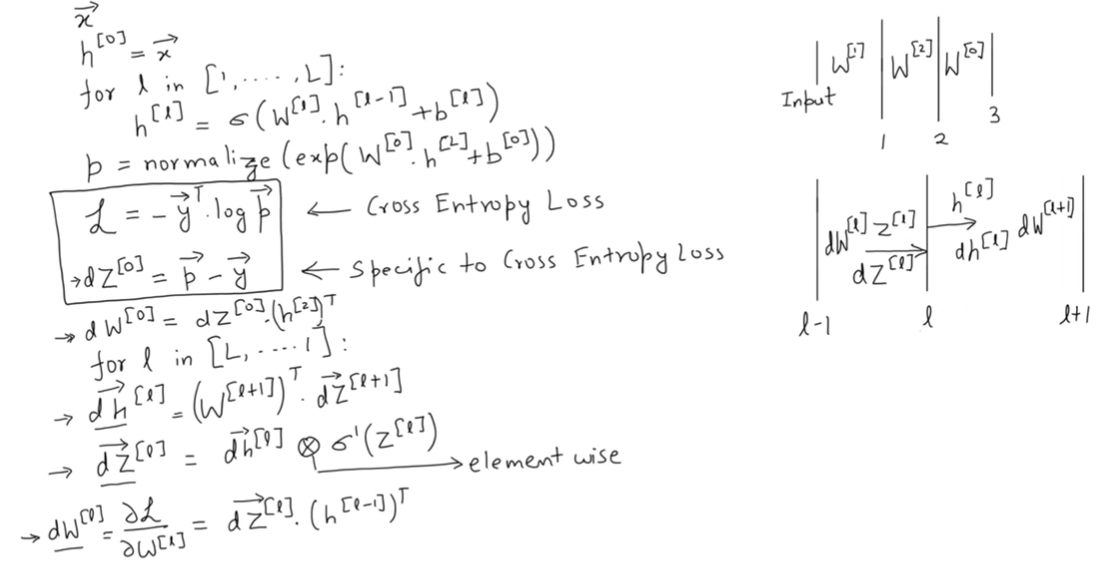 x⃗
h^[0] = x⃗
for l in [1, ...., L]:
h^[l] = σ(W^[l] . h^[l-1] + b^[l])
p = normalize(exp(W^[o] . h^[L] + b^[o]))
ℒ = - y⃗^T . log p⃗ ← Cross Entropy Loss
→ dZ^[o] = p⃗ - y⃗ ← Specific to Cross Entropy Loss
→ dW^[o] = dZ^[o] . (h^[2])^T
for l in [L, .... 1]:
→ dh⃗^[l] = (W^[l+1])^T . dZ⃗^[l+1]
→ dZ⃗^[l] = dh⃗^[l] ⊗ σ'(Z^[l])
→ element wise
→ dW^[l] = ∂ℒ/∂W^[l] = dZ⃗^[l] . (h^[l-1])^T
W^[1] W^[2] W^[o]
Input 1 2 3
dW^[l] Z^[l] h^[l] dW^[l+1]
dZ^[l] dh^[l]
l-1 l l+1